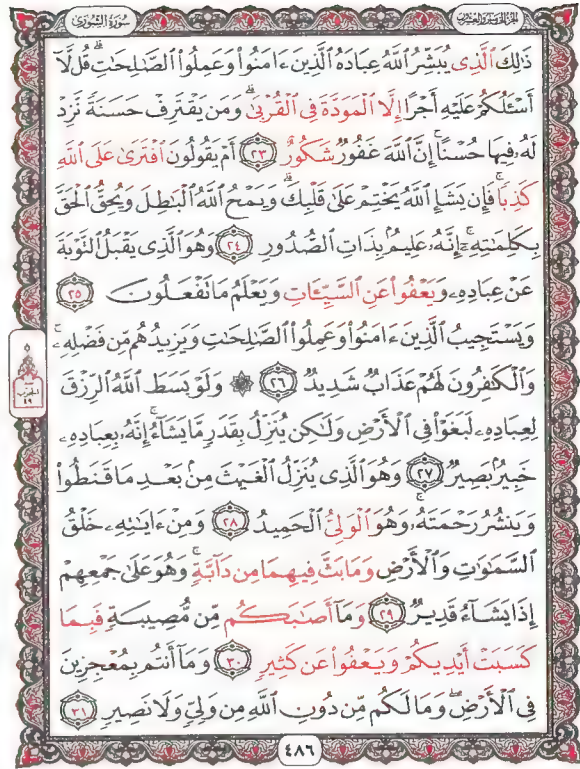 الجزء الخامس والعشرون
سورة الشورى
ذَٰلِكَ ٱلَّذِى يُبَشِّرُ ٱللَّهُ عِبَادَهُ ٱلَّذِينَ ءَامَنُوا۟ وَعَمِلُوا۟ ٱلصَّٰلِحَٰتِ ۗ قُل لَّآ
أَسْـَٔلُكُمْ عَلَيْهِ أَجْرًا إِلَّا ٱلْمَوَدَّةَ فِى ٱلْقُرْبَىٰ ۗ وَمَن يَقْتَرِفْ حَسَنَةً نَّزِدْ
لَهُۥ فِيهَا حُسْنًا ۚ إِنَّ ٱللَّهَ غَفُورٌ شَكُورٌ ٢٣ أَمْ يَقُولُونَ ٱفْتَرَىٰ عَلَى ٱللَّهِ
كَذِبًا ۖ فَإِن يَشَإِ ٱللَّهُ يَخْتِمْ عَلَىٰ قَلْبِكَ ۗ وَيَمْحُ ٱللَّهُ ٱلْبَٰطِلَ وَيُحِقُّ ٱلْحَقَّ
بِكَلِمَٰتِهِۦٓ ۚ إِنَّهُۥ عَلِيمٌۢ بِذَاتِ ٱلصُّدُورِ ٢٤ وَهُوَ ٱلَّذِى يَقْبَلُ ٱلتَّوْبَةَ
عَنْ عِبَادِهِۦ وَيَعْفُوا۟ عَنِ ٱلسَّيِّـَٔاتِ وَيَعْلَمُ مَا تَفْعَلُونَ ٢٥
وَيَسْتَجِيبُ ٱلَّذِينَ ءَامَنُوا۟ وَعَمِلُوا۟ ٱلصَّٰلِحَٰتِ وَيَزِيدُهُم مِّن فَضْلِهِۦ ۚ
وَٱلْكَٰفِرُونَ لَهُمْ عَذَابٌ شَدِيدٌ ٢٦ ۞ وَلَوْ بَسَطَ ٱللَّهُ ٱلرِّزْقَ
لِعِبَادِهِۦ لَبَغَوْا۟ فِى ٱلْأَرْضِ وَلَٰكِن يُنَزِّلُ بِقَدَرٍ مَّا يَشَآءُ ۚ إِنَّهُۥ بِعِبَادِهِۦ
خَبِيرٌۢ بَصِيرٌ ٢٧ وَهُوَ ٱلَّذِى يُنَزِّلُ ٱلْغَيْثَ مِنۢ بَعْدِ مَا قَنَطُوا۟
وَيَنشُرُ رَحْمَتَهُۥ ۚ وَهُوَ ٱلْوَلِىُّ ٱلْحَمِيدُ ٢٨ وَمِنْ ءَايَٰتِهِۦ خَلْقُ
ٱلسَّمَٰوَٰتِ وَٱلْأَرْضِ وَمَا بَثَّ فِيهِمَا مِن دَآبَّةٍ ۚ وَهُوَ عَلَىٰ جَمْعِهِمْ
إِذَا يَشَآءُ قَدِيرٌ ٢٩ وَمَآ أَصَٰبَكُم مِّن مُّصِيبَةٍ فَبِمَا
كَسَبَتْ أَيْدِيكُمْ وَيَعْفُوا۟ عَن كَثِيرٍ ٣٠ وَمَآ أَنتُم بِمُعْجِزِينَ
فِى ٱلْأَرْضِ ۖ وَمَا لَكُم مِّن دُونِ ٱللَّهِ مِن وَلِىٍّ وَلَا نَصِيرٍ ٣١
الحزب
٤٩
٤٨٦